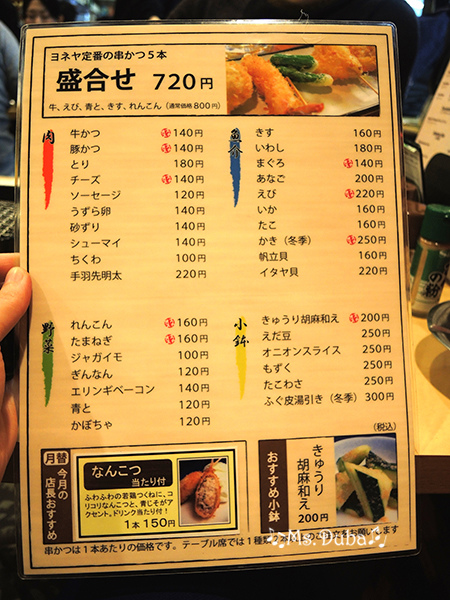 ヨネヤ定番の串かつ5本
盛合せ 720円
牛、えび、青と、きす、れんこん（通常価格800円）
肉
牛かつ 140円
豚かつ 140円
とり 180円
チーズ 140円
ソーセージ 120円
うずら卵 140円
砂ずり 140円
シューマイ 140円
ちくわ 100円
手羽先明太 220円
魚介
きす 160円
いわし 180円
まぐろ 140円
あなご 200円
えび 220円
いか 160円
たこ 160円
かき（冬季） 250円
帆立貝 160円
イタヤ貝 220円
野菜
れんこん 160円
たまねぎ 160円
ジャガイモ 100円
ぎんなん 120円
エリンギベーコン 140円
青と 120円
かぼちゃ 120円
小鉢
きゅうり胡麻和え 200円
えだ豆 250円
オニオンスライス 250円
もずく 250円
たこわさ 250円
ふぐ皮湯引き（冬季） 300円
（税込）
月替
今月の
店長おすすめ
なんこつ
当たり付
ふわふわの若鶏つくねに、コ
リコリなんこつと、青じそがア
クセント。ドリンク当たり付！
1本 150円
おすすめ小鉢
きゅうり
胡麻和え
200円
串かつは1本あたりの価格です。テーブル席では1種類2
お願いします
Ms. Duba